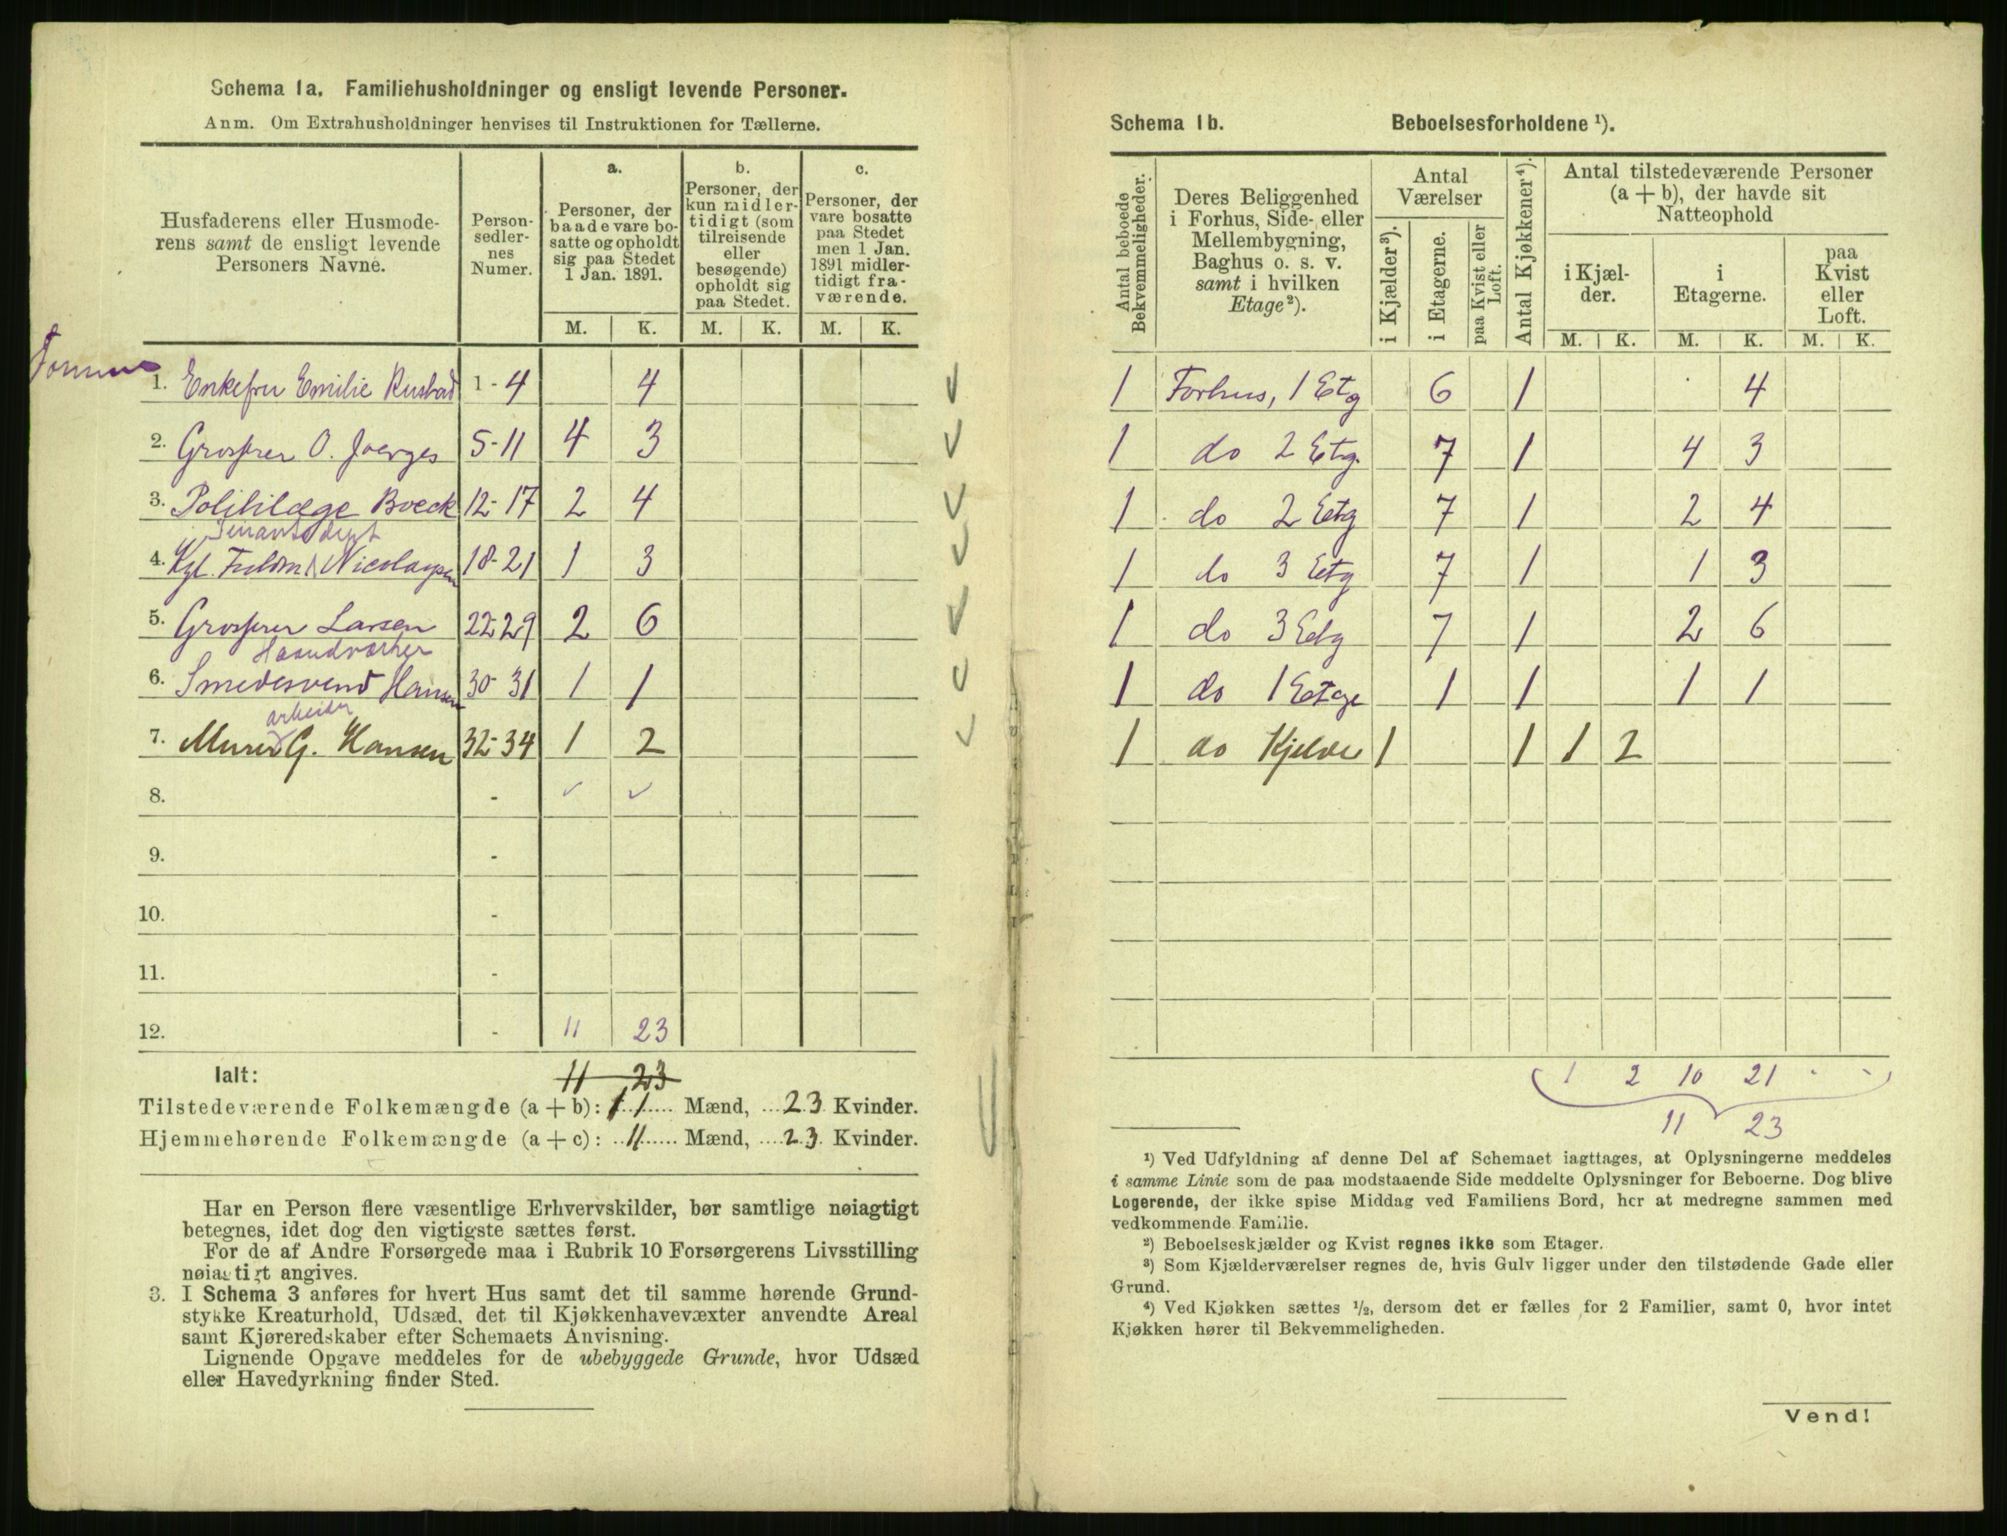 Schema 1a. Familiehusholdninger og ensligt levende Personer.
Anm. Om Extrahusholdninger henvises til Instruktionen for Tællerne.
Husfaderens eller Husmode-
rens samt de ensligt levende
Personers Navne.
Person-
sedler-
nes
Numer.
a.
Personer, der
baade vare bo-
satte og opholdt
sig paa Stedet
1 Jan. 1891.
b.
Personer, der
kun midler-
tidigt (som
tilreisende
eller
besøgende)
opholdt sig
paa Stedet.
c.
Personer, der
vare bosatte
paa Stedet
men 1 Jan.
1891 midler-
tidigt fra-
værende.
M. K. M. K. M. K.
1. Enkefru Emilie Rustad 1-4 4
2. Grosserer O. Joerges 5-11 4 3
3. Politilæge Boeck 12-17 2 4
4. Kgl. Fuldm. Nicolaysen 18-21 1 3
5. Grosserer Larsen 22-29 2 6
Haandværker
6. Smedesvend Hansen 30-31 1 1
arbeider
7. Murer G. Hansen 32-34 1 2
8. - ✓ ✓
9. -
10. -
11. -
12. - 11 23
Ialt: 11 23
Tilstedeværende Folkemængde (a + b): 11 Mænd, 23 Kvinder.
Hjemmehørende Folkemængde (a + c): 11 Mænd, 23 Kvinder.
Har en Person flere væsentlige Erhvervskilder, bør samtlige nøiagtigt
betegnes, idet dog den vigtigste sættes først.
For de af Andre Forsørgede maa i Rubrik 10 Forsørgerens Livsstilling
nøiagtigt angives.
3. I Schema 3 anføres for hvert Hus samt det til samme hørende Grund-
stykke Kreaturhold, Udsæd, det til Kjøkkenhavevæxter anvendte Areal
samt Kjøreredskaber efter Schemaets Anvisning.
Lignende Opgave meddeles for de ubebyggede Grunde, hvor Udsæd
eller Havedyrkning finder Sted.
Schema 1b. Beboelsesforholdene ¹).
Antal beboede
Bekvemmeligheder.
Deres Beliggenhed
i Forhus, Side- eller
Mellembygning,
Baghus o. s. v.
samt i hvilken
Etage²).
Antal
Værelser
i Kjælder³).
i Etagerne.
paa Kvist eller
Loft.
Antal Kjøkkener⁴).
Antal tilstedeværende Personer
(a + b), der havde sit
Natteophold
i Kjæl-
der.
i
Etagerne.
paa
Kvist
eller
Loft.
M. K. M. K. M. K.
1 Forhus, 1 Etg 6 1 4
1 do 2 Etg. 7 1 4 3
1 do 2 Etg 7 1 2 4
1 do 3 Etg 7 1 1 3
1 do 3 Etg 7 1 2 6
1 do 1 Etage 1 1 1 1
1 do Kjelder 1 1 1 2
1 2 10 21 . .
11 23
¹) Ved Udfyldning af denne Del af Schemaet iagttages, at Oplysningerne meddeles
i samme Linie som de paa modstaaende Side meddelte Oplysninger for Beboerne. Dog blive
Logerende, der ikke spise Middag ved Familiens Bord, her at medregne sammen med
vedkommende Familie.
²) Beboelseskjælder og Kvist regnes ikke som Etager.
³) Som Kjælderværelser regnes de, hvis Gulv ligger under den tilstødende Gade eller
Grund.
⁴) Ved Kjøkken sættes ½, dersom det er fælles for 2 Familier, samt 0, hvor intet
Kjøkken hører til Bekvemmeligheden.
Vend!